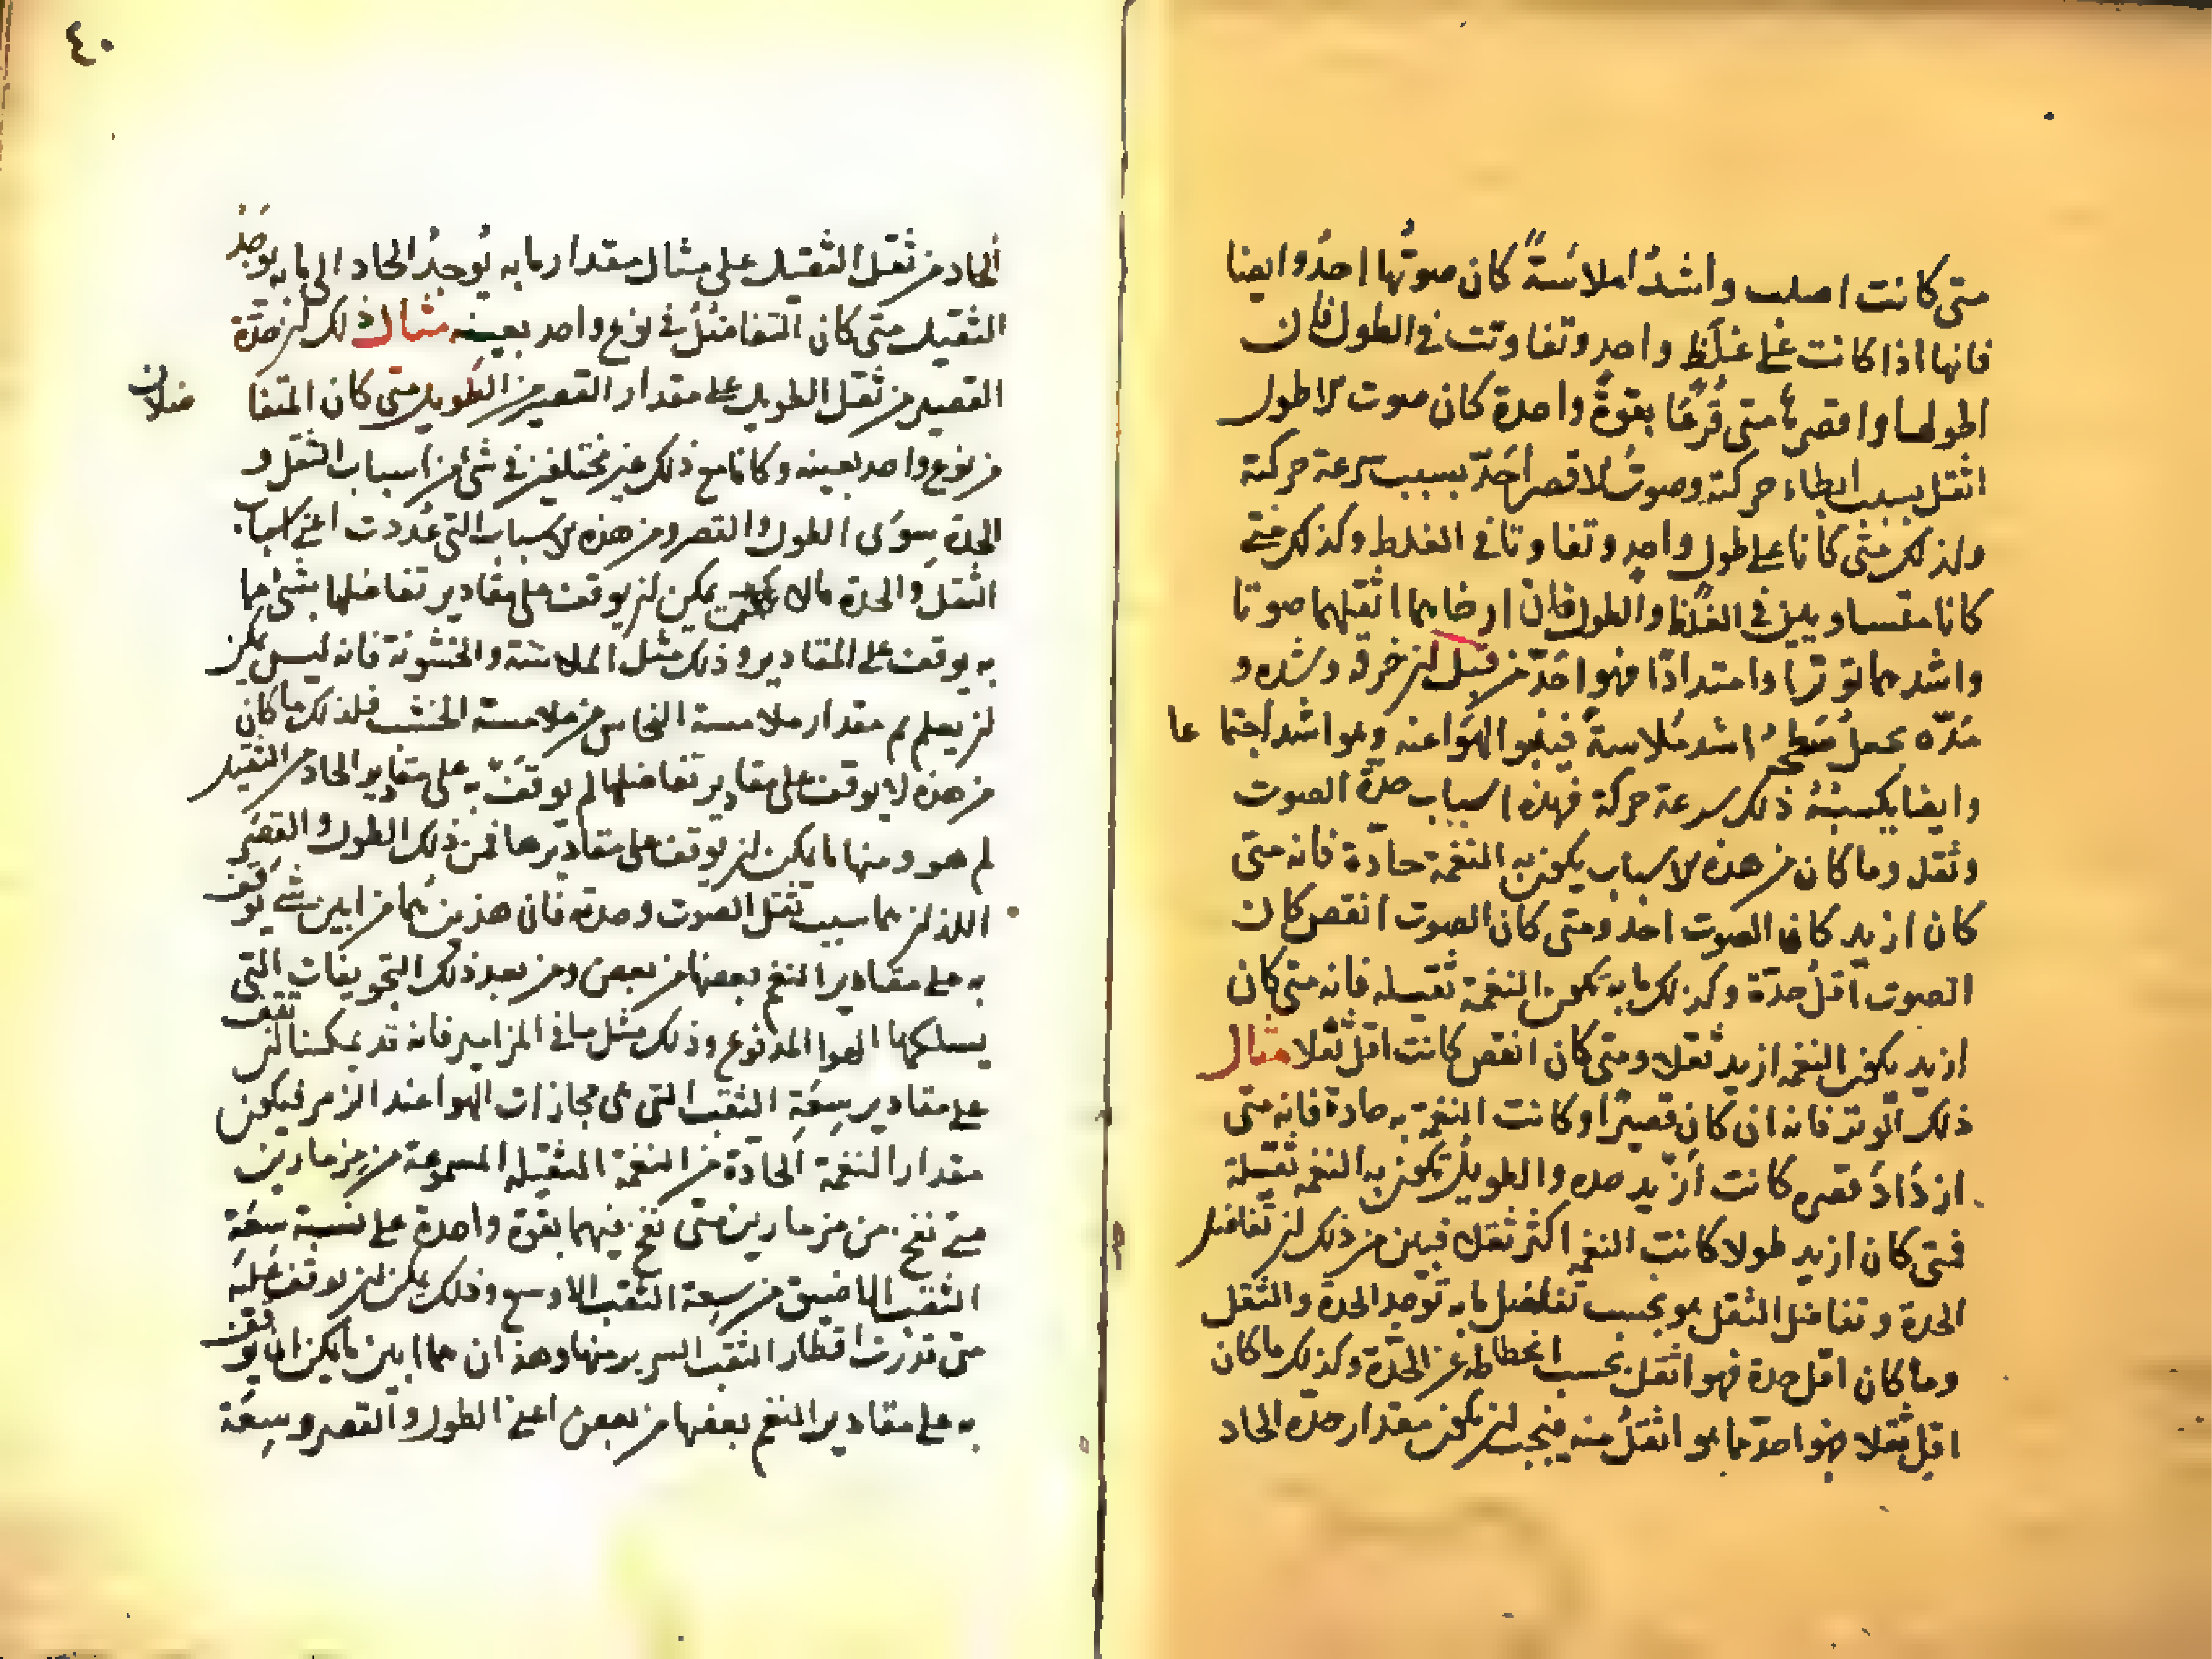 متى كانت اصلب واشدُ املاسَةً كان صوتُها احدُّ وايضا
فانها اذا كانت على غلَظٍ واحدٍ وتفاوتت في الطول فان
اطولها واقصرها متى قُرِعَا بقوةٍ واحدة كان صوت الاطول
اثقل بسبب ابطاء حركته وصوتُ الاقصر احَدّ بسبب سرعة حركته
ولذلك متى كانا على طول واحدٍ وتفاوتا في الغلظ وكذلك متى
كانا متساويين في الغلظ والطول فان ارخاهما اثقلهما صوتا
واشدهما توترا وامتدادًا فهو احَدّ من قبل ان خرقه وشده و
مَدّه يجعل سَطحه اشد مُلاسةً فينبو الهوا عنه وهو اشد اجتما عا
وايضا يكسبُهُ ذلك سرعة حركة فهذه اسباب حدّة الصوت
وثقله وما كان من هذه الاسباب يكون به النغمة حادّة فانه متى
كان ازيد كان الصوت احد ومتى كان الصوت انقص كان
الصوت اقلُ حدّة وكذلك ما به تكون النغمة ثقيله فانه متى كان
ازيد يكون النغمه ازيد ثقلا ومتى كان انقص كانت اقل ثقلا مثال
ذلك الوتر فانه ان كان قصيرًا وكانت النغمة به حادة فانه متى
ازدَادَ قصره كانت ازيد حده والطويلُ تكون به النغمه ثقيلة
فمتى كان ازيد طولا كانت النغمه اكثر ثقلا فبين من ذلك ان تفاضل
الحدة وتفاضل الثقل هو بحسب تفاضل ما به توجد الحدة والثقل
وما كان اقل حدة فهو اثقل بحسب انحطاطه عن الحدّة وكذلك ما كان
اقل ثقلا فهو احدّ مما هو اثقلُ منه فيجب ان يكون مقدار حدّه الحاد
٤٠
الحاد من ثقل الثقيل على مثال مقدار ما به يُوجدُ الحاد الى ما به يوجَدُ
الثقيل متى كان التفاضلُ في نوع واحد بعينه مثال ذلك ان حدّة
القصير من ثقل الطويل على مقدار القصير من الطويل متى كان المتفا ضلان
من نوع واحد بعينه وكانا مع ذلك غير مختلفين في شئ من اسباب الثقل و
الحدة سِوَى الطول والقصر ومن هذه الاسباب التي عُددت اعنى اسباب
الثقل والحدة مالا يمكن ان يوقف على مقادير تفاضلها بشئ مما
به يوقف على المقادير وذلك مثل الملاسة والخشونة فانه ليس يمكن
ان يعلم كم مقدار ملاسة النحاس من ملاسة الخشب فلذلك ما كان
من هذه لا يوقف على مقادير تفاضلها لم يوقَف به على مقادير الحاد من الثقيل
كم هو ومنها ما يمكن ان يوقف على مقاديرها فمن ذلك الطول والقِصَر
اللذان هما سبب ثقل الصوت وحدته فان هذين هُما من ابين شئ يوقَف
به على مقادير النغم بعضها من بعض ومن بعد ذلك التجويفات التي
يسلكها الهوا المدفوع وذلك مثل ما في المزامير فانه قد يمكننا ان نقف
على مقادير سِعَة الثقب التي هي مجازات الهوا عند الزمر فيكون
مقدار النغمة الحادّة من النغمة الثقيله المسموعة من مِزمارين
متى نفخ من مزمارين متى نفخ فيهما بقوة واحدة على نسبة سِعَة
الثقب الاضيق من سعة الثقب الاوسع وذلك يمكن ان يوقف عَليه
متى قدّرت اقطار الثقب المستديره منها وهذان هما ابين ما يمكن ان يوقف
به على مقادير النغم بعضها من بعض اعنى الطول والقصر وسِعَة